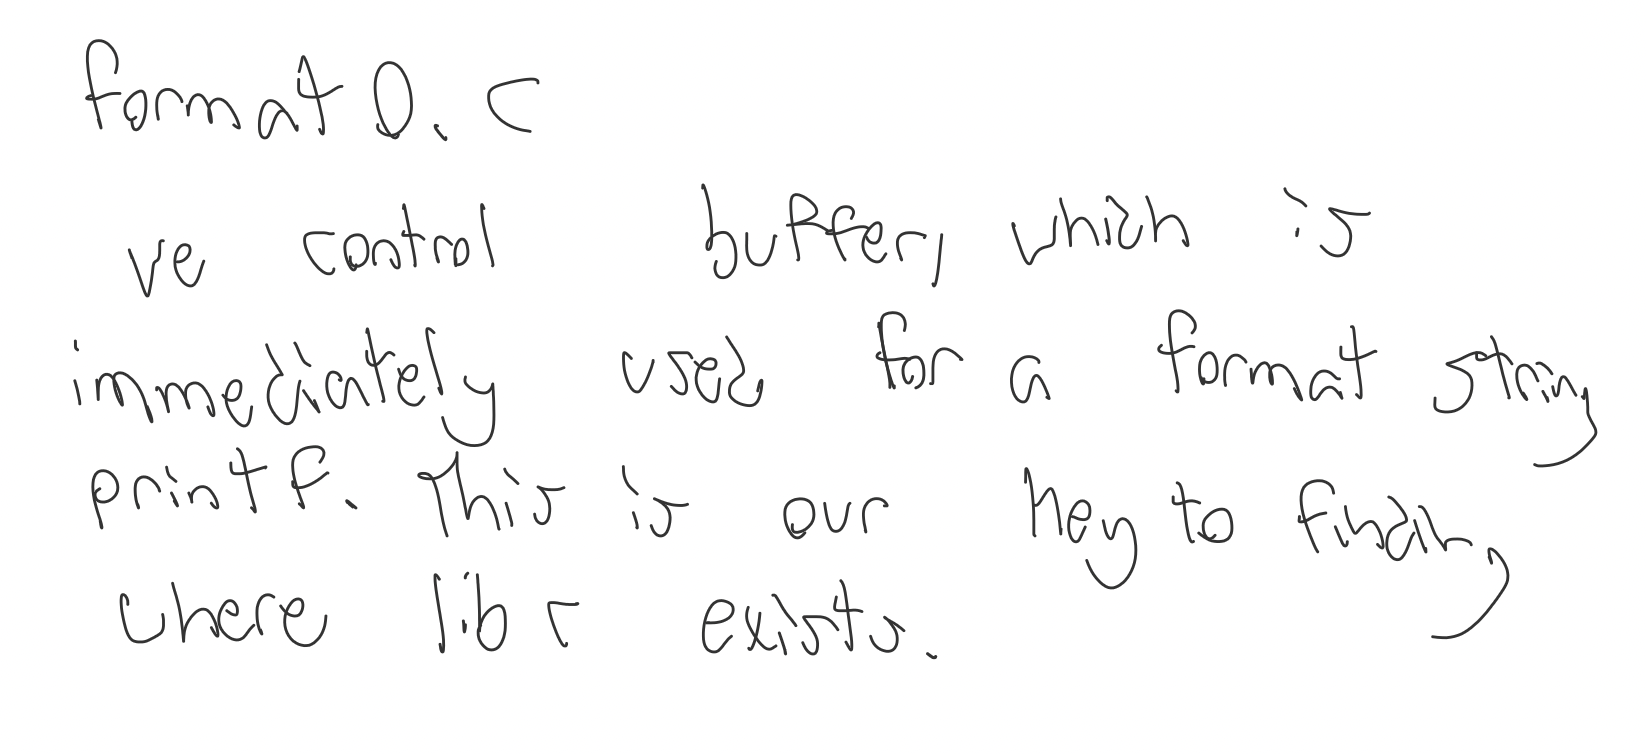 format0.c
we control buffer, which is
immediately used for a format string
printf. This is our key to finding
where libc exists.